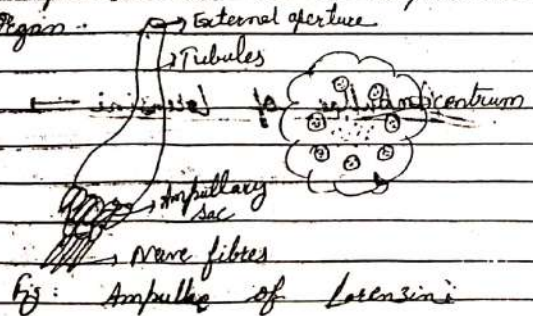 Organ.
External aperture
Tubules
centrum
Ampullary
sac
Nerve fibres
Fig: Ampullae of Lorenzini